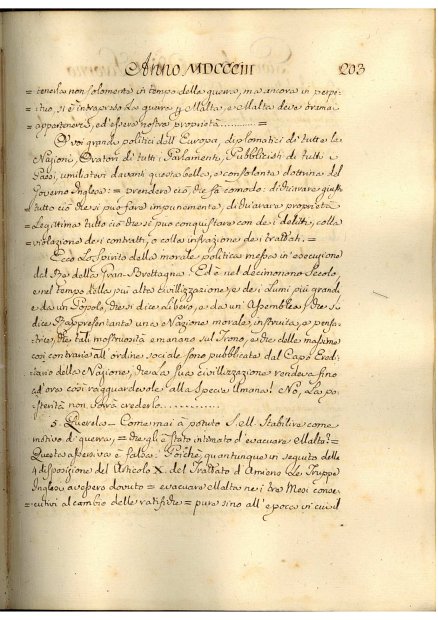 Anno MDCCCIII 203
= tenerla non solamente in tempo della guerra, ma ancora in perpe=
= tuo, si è intrapresa La guerra p Malta, e Malta deve oramai
= appartenerci, ed essere nostra proprietà ............ =
O voi grandi politici dell'Europa, diplomatici di tutte le
Nazioni, Oratori di tutti i Parlamenti, Pubblicisti di tutti i
Paesi, umiliatevi davanti questa bella, e consolante dottrina del
Governo Inglese: = prendere ciò, che fa comodo: dichiarare giusto
tutto ciò che si può fare impunemente, dichiarare proprietà
= Legittima tutto ciò che si può conquistare con dei delitti, colla
= violazione dei contratti, o colla infrazione dei trattati. =
Ecco Lo Spirito della morale politica messa in esecuzione
del Re della Gran-Brettagna. Ed è nel decimonono Secolo,
e nel tempo della più alta civilizzazione, e dei Lumi più grandi
e da un Popolo, che si dice Libero, e da un'Assemblea, che si
dice Rappresentante una Nazione morale, instruita, e pensa=
trice, che tali mostruosità emanano sul Trono, e che delle massime
così contrarie all'ordine sociale sono pubblicate dal Capo Eredi=
tario della Nazione, che La sua civilizzazione rendeva fino
ad'ora così ragguardevole alla Specie Umana! No, La po=
sterità non potrà crederlo ............
5. Querela = Come mai à potuto S. M. Stabilire come
motivo di guerra, = che gli è stato intimato d'evacuare Malta? =
Questa asserzione è falsa: Poichè, quantunque in seguito delle
4 disposizione del Articolo X. del Trattato d'Amiens Le Truppe
Inglesi avessero dovuto = evacuare Malta nei tre Mesi conse=
cutivi al cambio delle ratifiche = pure sino all'epoca in cui il